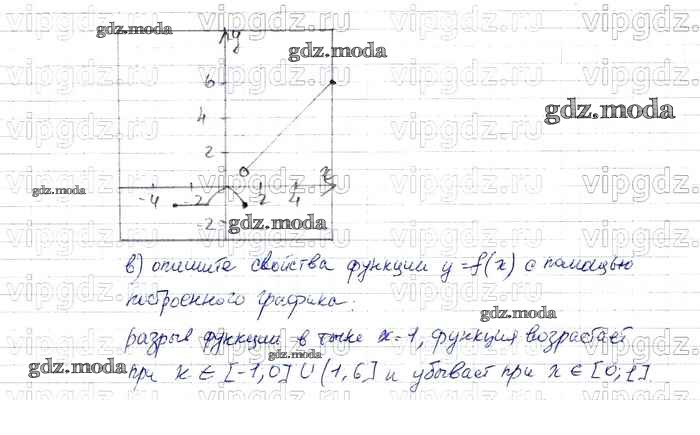 y
6
4
2
x
-4 -2 2 4
-2
в) опишите свойства функции y=f(x) с помощью
построенного графика.
разрыв функции в точке x=1, функция возрастает
при x ∈ [-1,0] ∪ (1,6] и убывает при x ∈ [0,1].
gdz.moda
gdz.moda
gdz.moda
gdz.moda
gdz.moda
gdz.moda
gdz.moda
gdz.moda
gdz.moda
vipgdz.ru